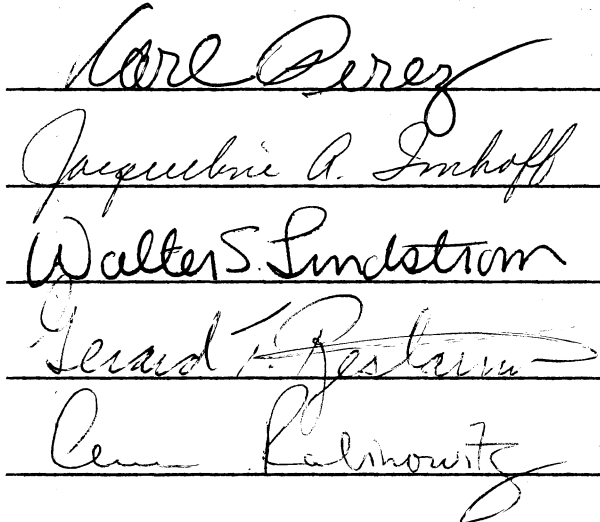 Carl Perez
Jacqueline A. Imhoff
Walter S. Lindstrom
Gerard T.
Rabinowitz